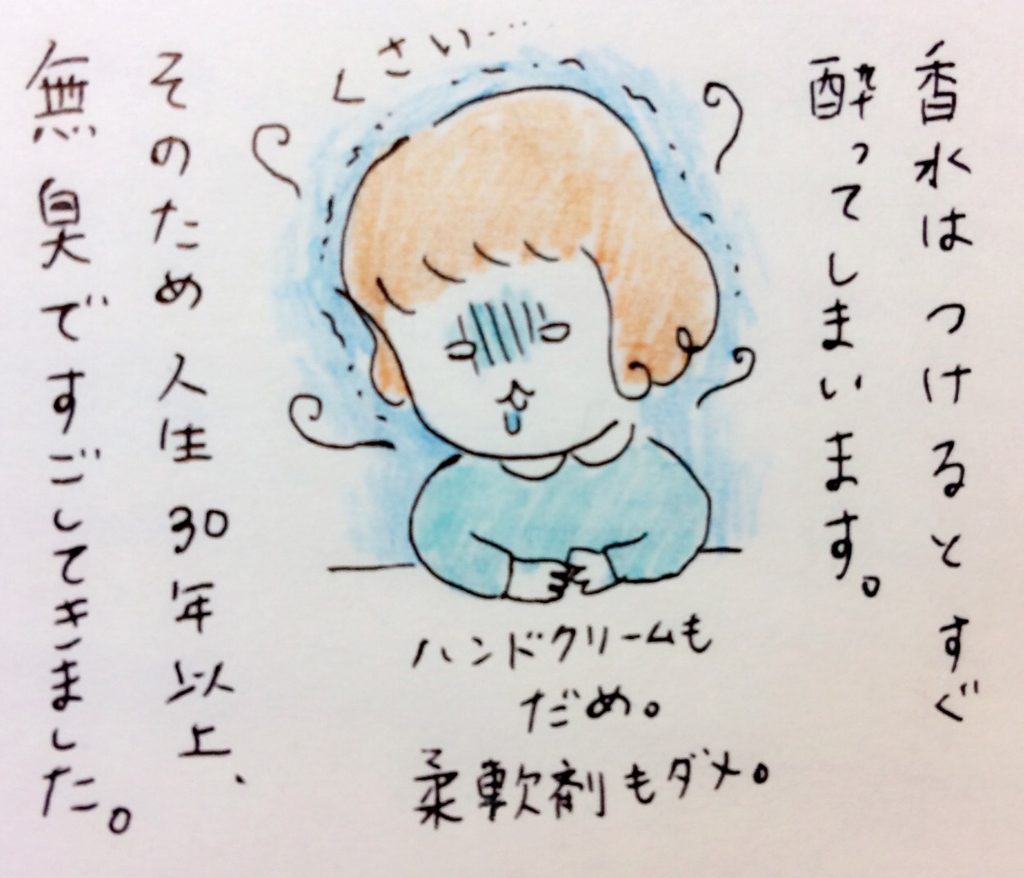 香水はつけるとすぐ
酔ってしまいます。
くさい…
ハンドクリームも
だめ。
柔軟剤もダメ。
そのため人生30年以上、
無臭ですごしてきました。